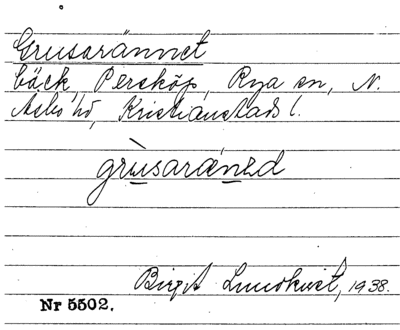 Grusarännet
bäck, Perstöp, Rya sn, N.
Åsbo hd, Kristianstads l.
grùsaränəd
Birgit Lundkvist, 1938.
Nr 5502.